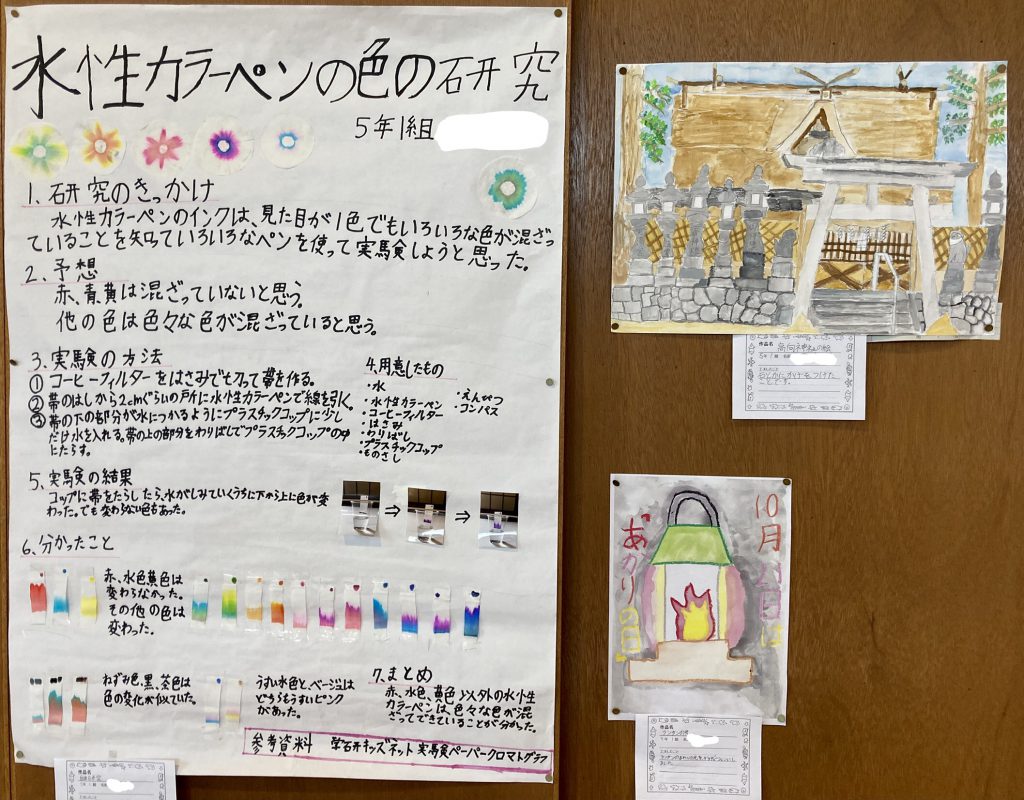 水性カラーペンの色の研究
5年1組
1、研究のきっかけ
水性カラーペンのインクは、見た目が1色でもいろいろな色が混ざっ
ていることを知っていろいろなペンを使って実験しようと思った。
2、予想
赤、青、黄は混ざっていないと思う。
他の色は色々な色が混ざっていると思う。
3、実験の方法
① コーヒーフィルターをはさみで切って帯を作る。
② 帯のはしから2cmぐらいの所に水性カラーペンで線を引く。
③ 帯の下の部分が水につかるようにプラスチックコップに少し
だけ水を入れる。帯の上の部分をわりばしでプラスチックコップの中
にたらす。
4、用意したもの
・水
・水性カラーペン
・コーヒーフィルター
・はさみ
・わりばし
・プラスチックコップ
・ものさし
・えんぴつ
・コンパス
5、実験の結果
コップに帯をたらしたら、水がしみていくうちに下から上に色が変
わった。でも変わらない色もあった。
⇒ ⇒
6、分かったこと
赤、水色、黄色は
変わらなかった。
その他の色は
変わった。
ねずみ色、黒、茶色は
色の変化が似ていた。
うすい水色と、ベージュは
どちらもうすいピンク
があった。
7、まとめ
赤、水色、黄色以外の水性
カラーペンは、色々な色が混
ざってできていることが分かった。
参考資料 学研キッズネット 実験ペーパークロマトグラフ
作品名
5年1組
作品名
高向神社の絵
5年1組 名前
10月
あかりの日
作品名
5年1組